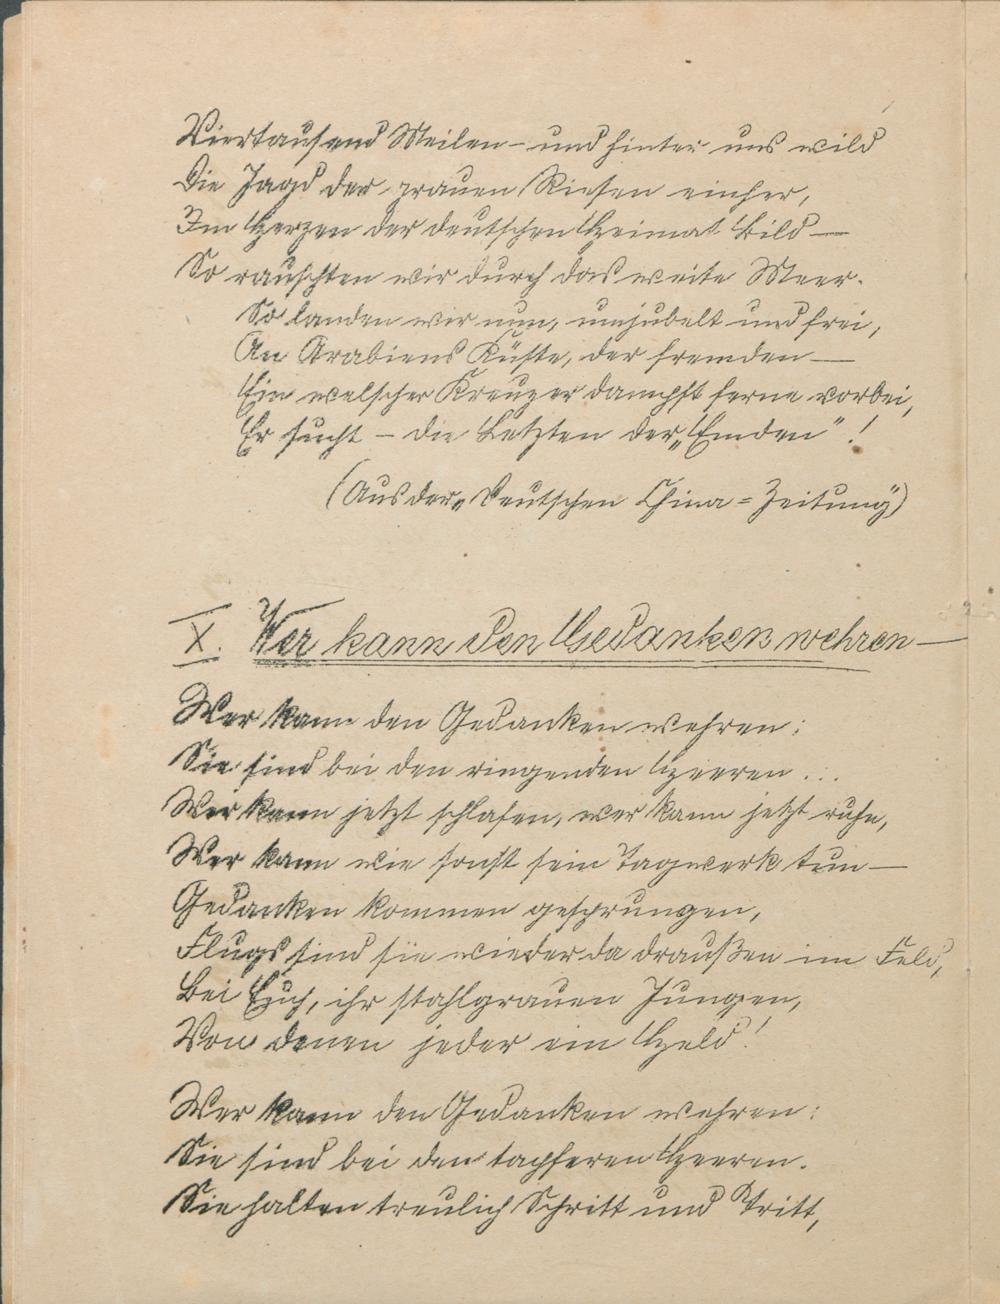 Viertausend Meilen – und hinter uns wild
Die Jagd der grauen Riesen einher,
Im Herzen der deutschen Heimat Bild —
So rauschten wir durch das weite Meer.
So landen wir nun, umjubelt und frei,
An Arabiens Küste, der fremden —
Ein welscher Kreuzer dampft ferne vorbei,
Er sucht – die Letzten der „Emden"!
(Aus der „Deutschen China=Zeitung")
X. Wer kann den Gedanken wehren —
Wer kann den Gedanken wehren:
Sie sind bei den ringenden Heeren...
Wer kann jetzt schlafen, wer kann jetzt ruhn,
Wer kann wie sonst sein Tagwerk tun —
Gedanken kommen gesprungen,
Flugs sind sie wieder da draußen im Feld,
Bei Euch, ihr stahlgrauen Jungen,
Von denen jeder ein Held!
Wer kann den Gedanken wehren:
Sie sind bei den tapferen Heeren.
Sie halten treulich Schritt und Tritt,